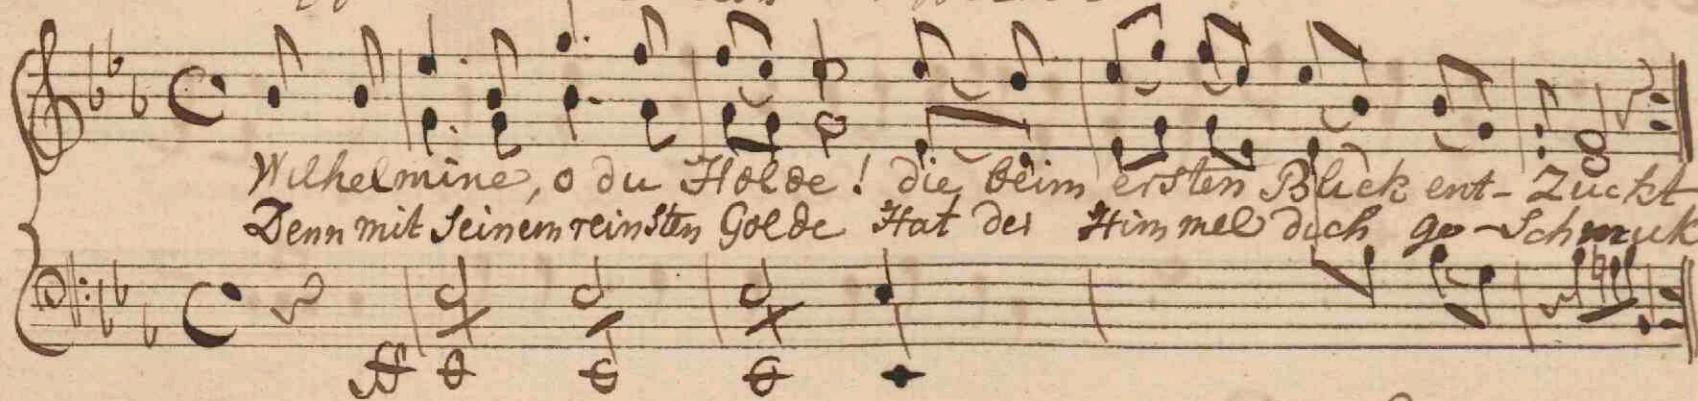 Wilhelmine, o du Holde! die beim ersten Blick ent-zückt
Denn mit Seinem reinsten Golde Hat der Himmel dich ge-schmük
ff